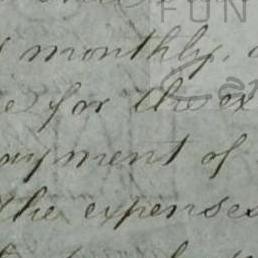 FUN
monthly,
for the ex
ayment of
the expenses